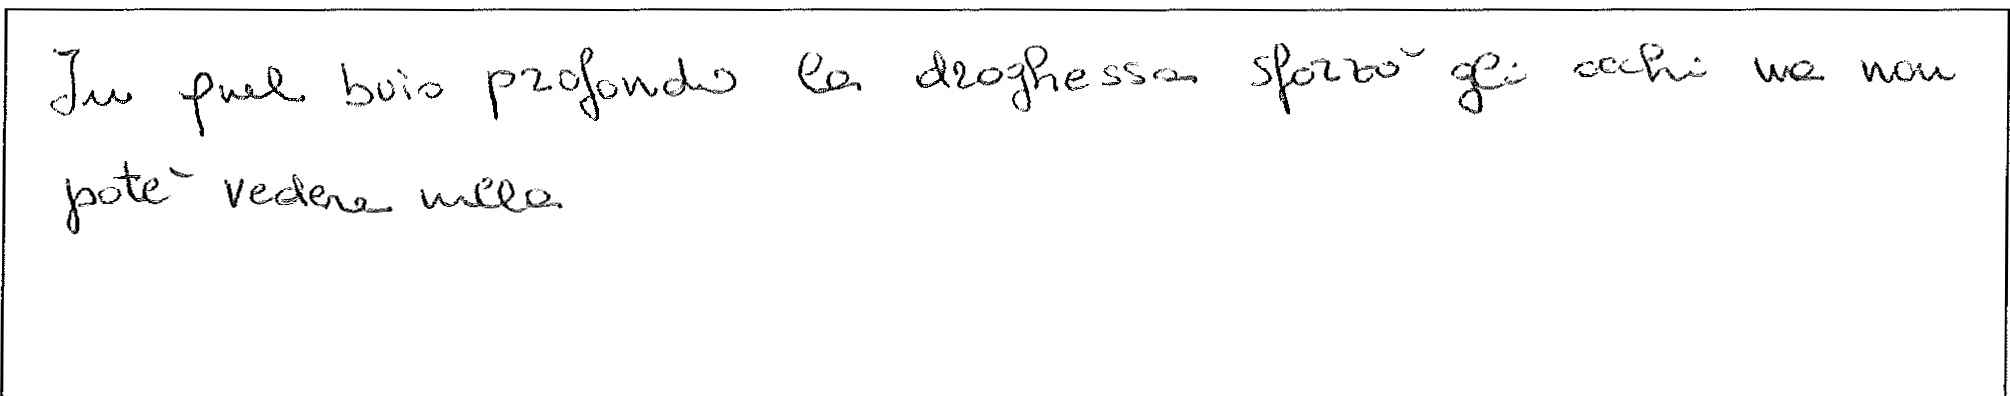 In quel buio profondo la droghessa sforzò gli occhi ma non
potè vedere nulla